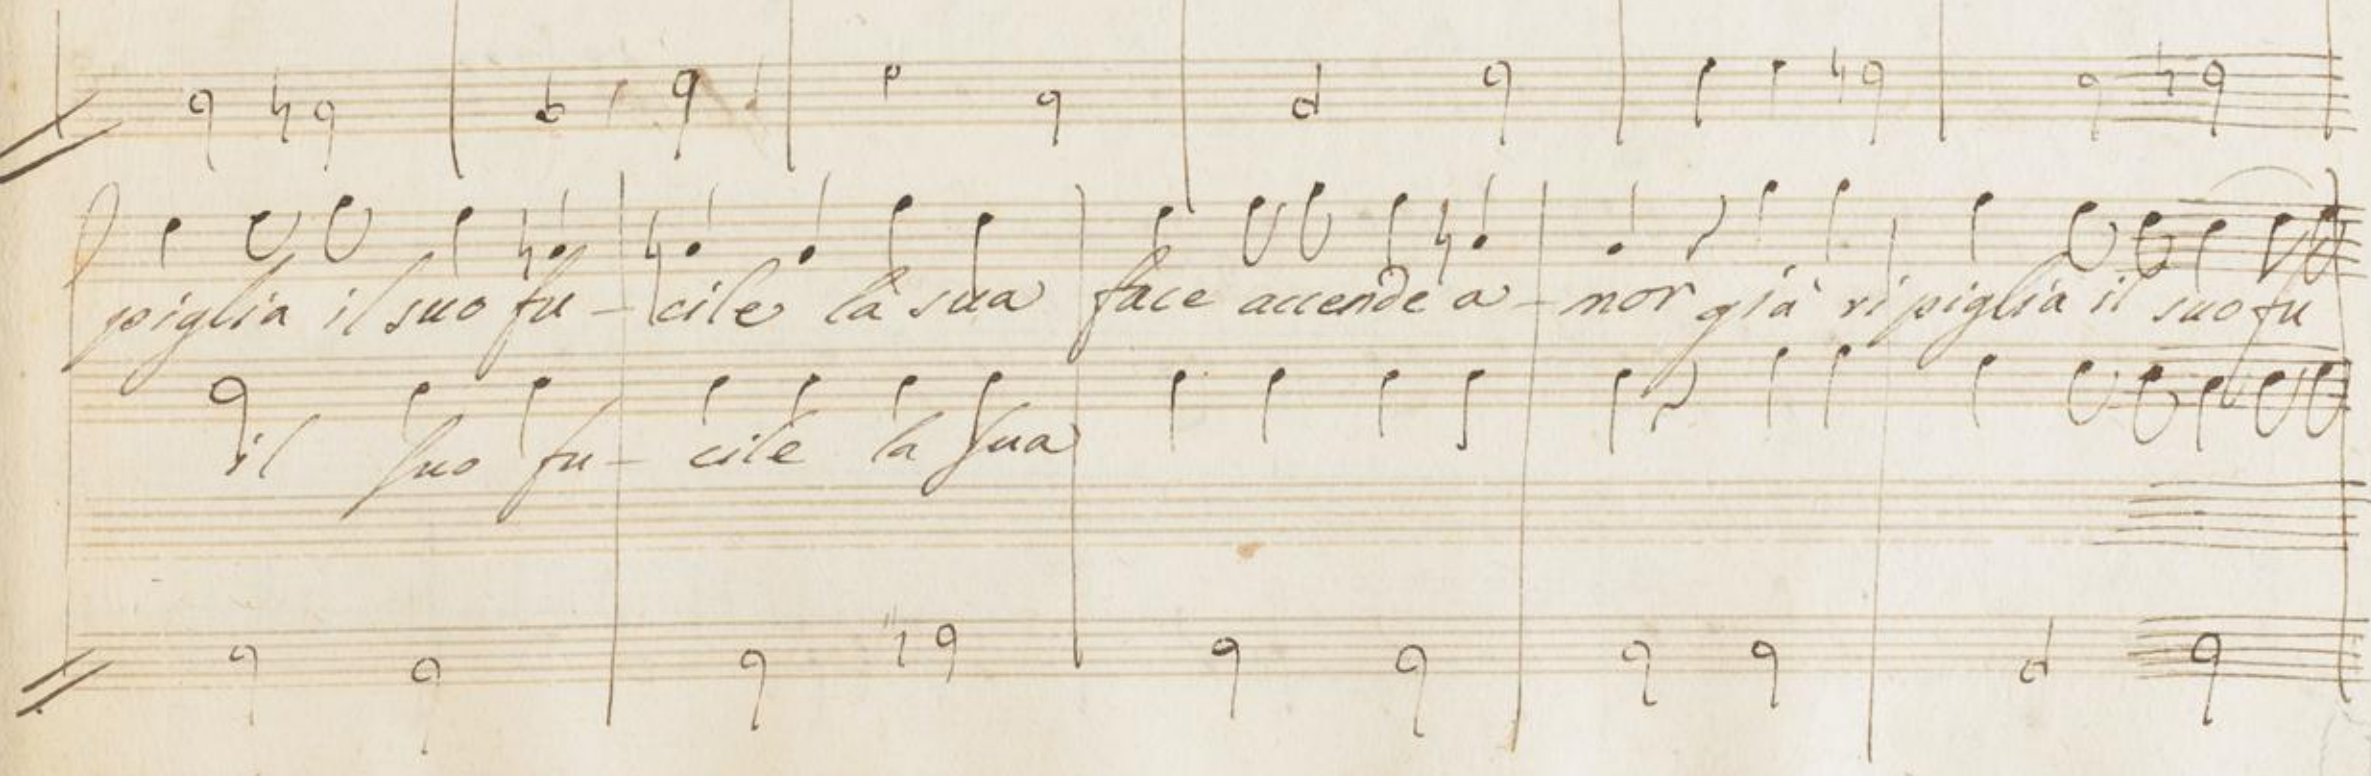 piglia il suo fu - cile la sua face accende a - mor già ri piglia il suo fu
il suo fu - cile la sua